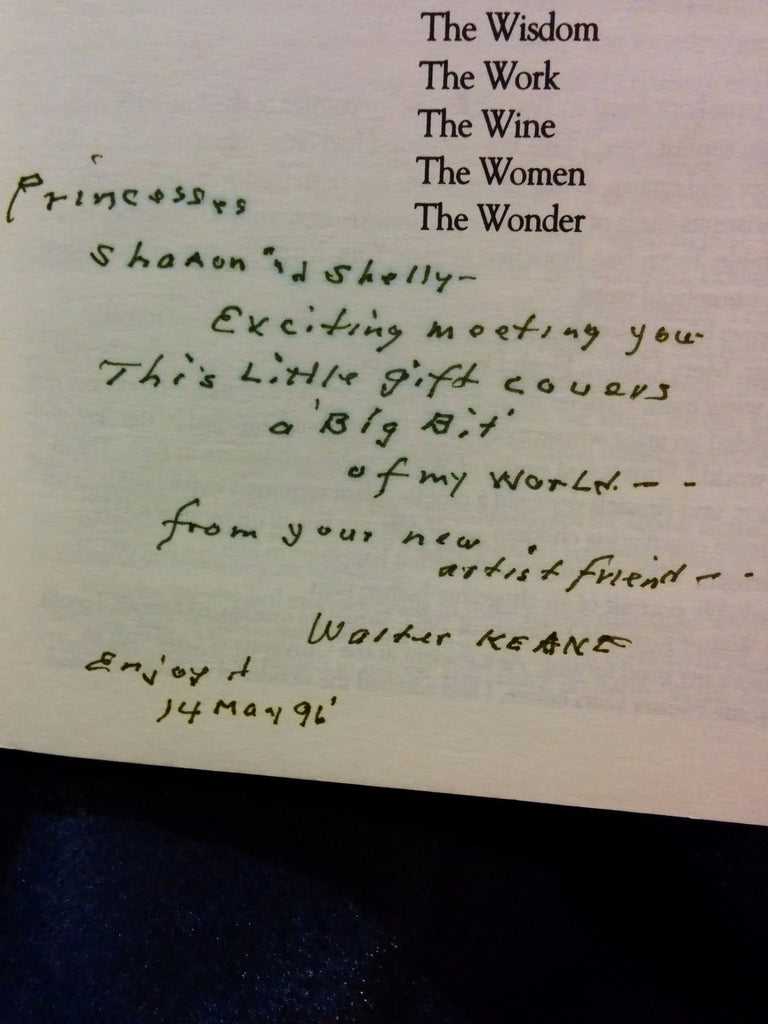 The Wisdom
The Work
The Wine
The Women
The Wonder
Princesses
Sharon 'nd Shelly-
Exciting meeting you-
This Little gift covers
a 'Big Bit'
of my World. - -
from your new
artist friend - -
Walter KEANE
Enjoy
14 May 96'